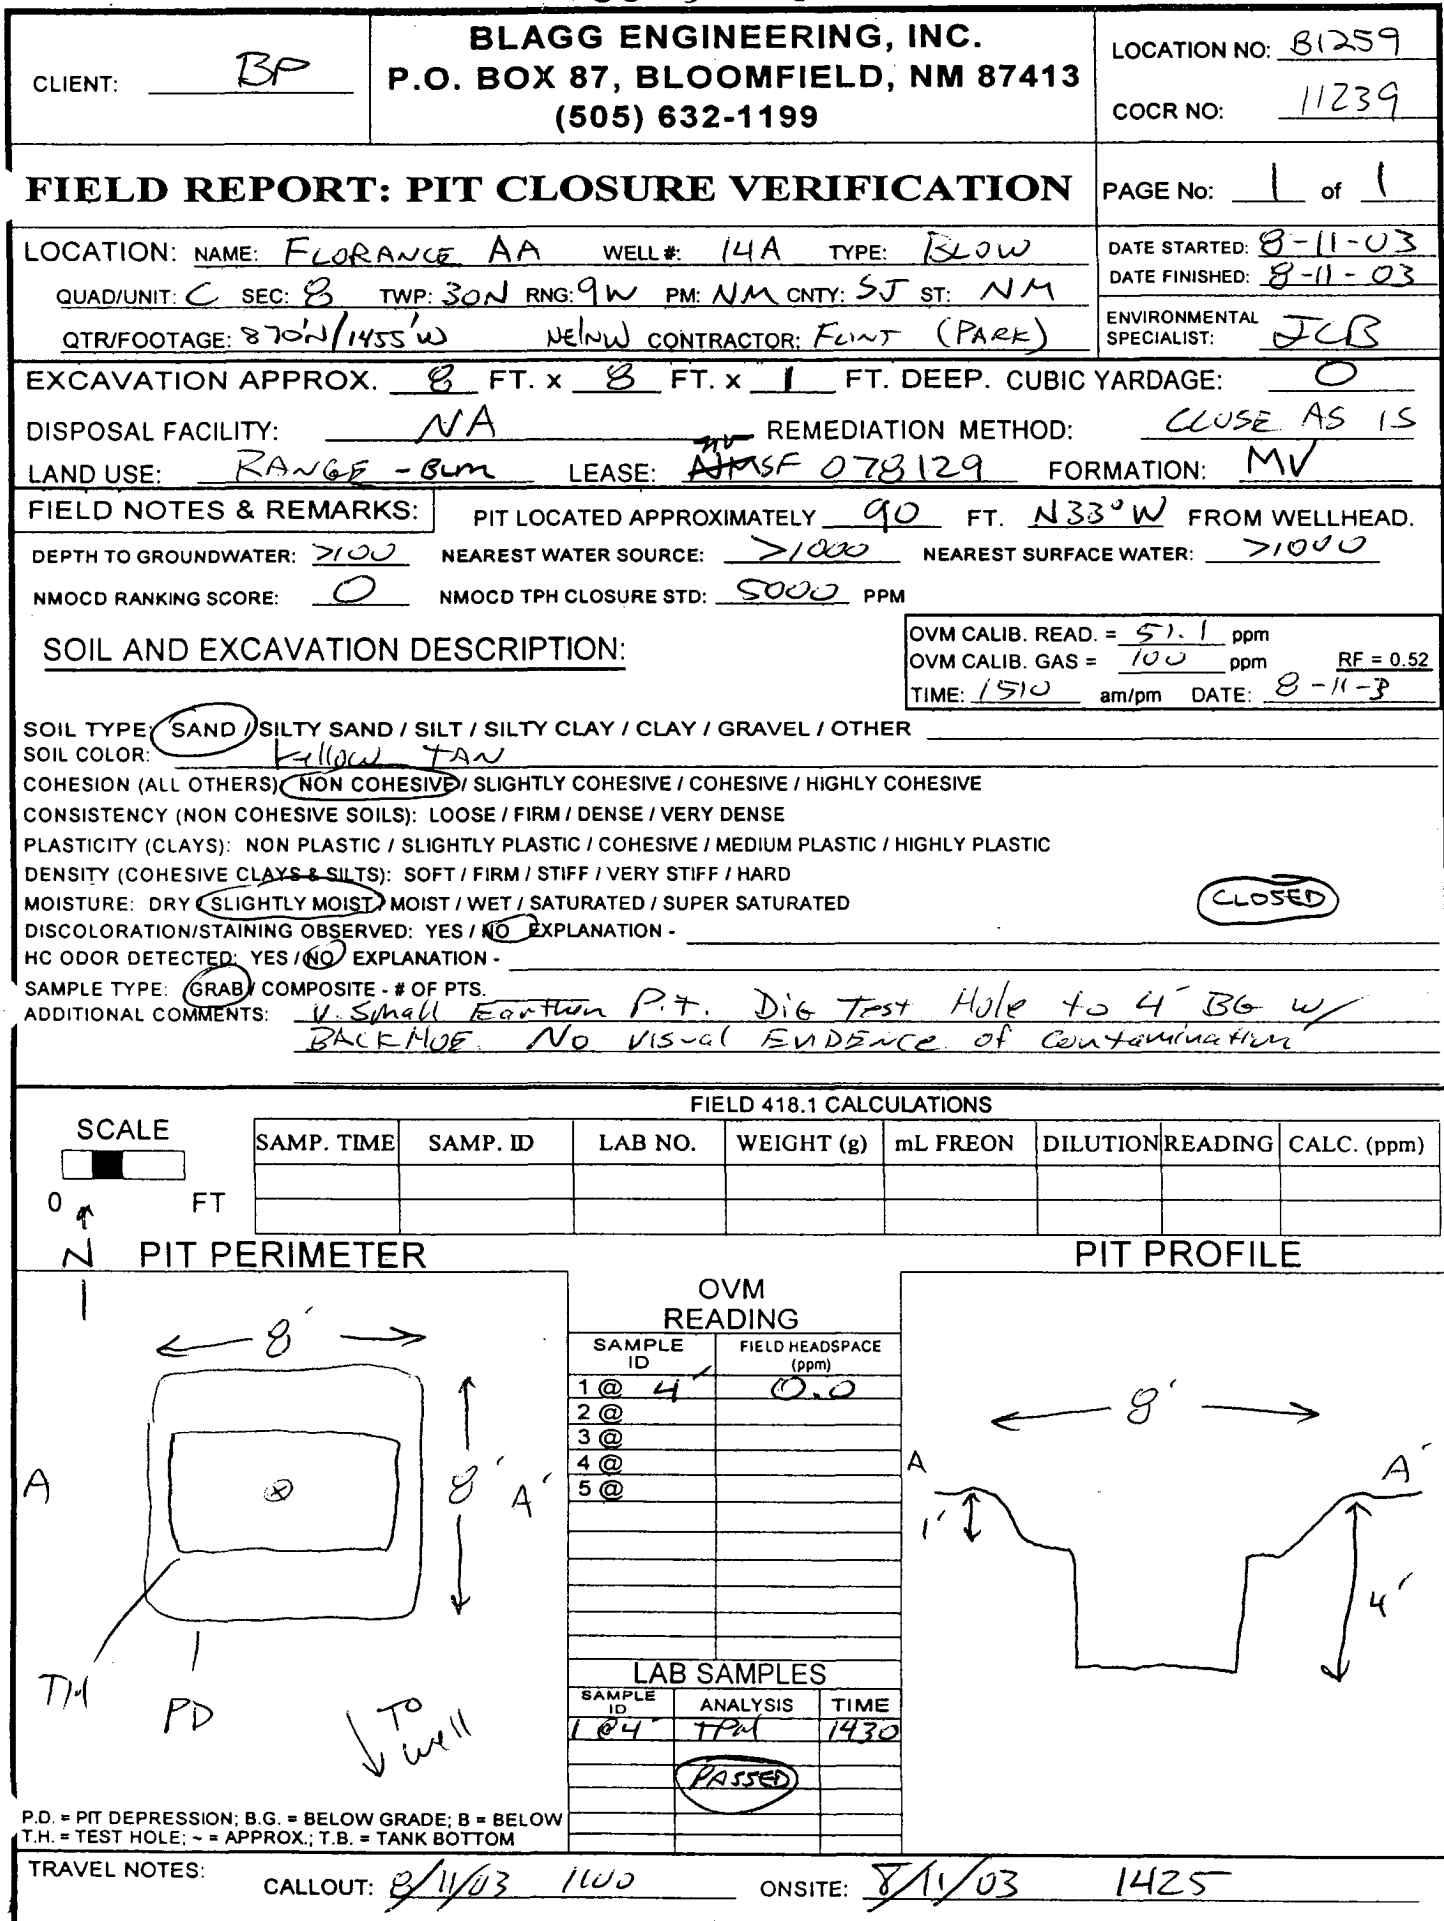 CLIENT: BP
BLAGG ENGINEERING, INC.
P.O. BOX 87, BLOOMFIELD, NM 87413
(505) 632-1199
LOCATION NO: B1259
COCR NO: 11239
FIELD REPORT: PIT CLOSURE VERIFICATION
PAGE No: 1 of 1
LOCATION: NAME: FLORANCE AA WELL #: 14A TYPE: BLOW
QUAD/UNIT: C SEC: 8 TWP: 30N RNG: 9W PM: NM CNTY: SJ ST: NM
QTR/FOOTAGE: 870'N/1455'W NE/NW CONTRACTOR: FLINT (PARK)
DATE STARTED: 8-11-03
DATE FINISHED: 8-11-03
ENVIRONMENTAL
SPECIALIST: JCB
EXCAVATION APPROX. 8 FT. x 8 FT. x 1 FT. DEEP. CUBIC YARDAGE: 0
DISPOSAL FACILITY: NA REMEDIATION METHOD: CLOSE AS IS
LAND USE: RANGE - BLM LEASE: SF 078129 FORMATION: MV
FIELD NOTES & REMARKS: PIT LOCATED APPROXIMATELY 90 FT. N33°W FROM WELLHEAD.
DEPTH TO GROUNDWATER: >100 NEAREST WATER SOURCE: >1000 NEAREST SURFACE WATER: >1000
NMOCD RANKING SCORE: 0 NMOCD TPH CLOSURE STD: 5000 PPM
SOIL AND EXCAVATION DESCRIPTION:
OVM CALIB. READ. = 51.1 ppm
OVM CALIB. GAS = 100 ppm RF = 0.52
TIME: 1510 am/pm DATE: 8-11-3
SOIL TYPE: SAND / SILTY SAND / SILT / SILTY CLAY / CLAY / GRAVEL / OTHER
SOIL COLOR: Yellow TAN
COHESION (ALL OTHERS): NON COHESIVE / SLIGHTLY COHESIVE / COHESIVE / HIGHLY COHESIVE
CONSISTENCY (NON COHESIVE SOILS): LOOSE / FIRM / DENSE / VERY DENSE
PLASTICITY (CLAYS): NON PLASTIC / SLIGHTLY PLASTIC / COHESIVE / MEDIUM PLASTIC / HIGHLY PLASTIC
DENSITY (COHESIVE CLAYS & SILTS): SOFT / FIRM / STIFF / VERY STIFF / HARD
MOISTURE: DRY / SLIGHTLY MOIST / MOIST / WET / SATURATED / SUPER SATURATED
CLOSED
DISCOLORATION/STAINING OBSERVED: YES / NO EXPLANATION -
HC ODOR DETECTED: YES / NO EXPLANATION -
SAMPLE TYPE: GRAB / COMPOSITE - # OF PTS.
ADDITIONAL COMMENTS: V. Small Earthen Pit. Dig Test Hole to 4' BG w/
BACKHOE. No Visual EVIDENCE of Contamination
FIELD 418.1 CALCULATIONS
SCALE
0 FT
SAMP. TIME SAMP. ID LAB NO. WEIGHT (g) mL FREON DILUTION READING CALC. (ppm)
N
PIT PERIMETER
8'
A
8'
A'
TH
PD
TO well
OVM
READING
SAMPLE ID FIELD HEADSPACE (ppm)
1 @ 4' 0.0
2 @
3 @
4 @
5 @
LAB SAMPLES
SAMPLE ID ANALYSIS TIME
1@4' TPH 1430
PASSED
PIT PROFILE
8'
A
A'
1'
4'
P.D. = PIT DEPRESSION; B.G. = BELOW GRADE; B = BELOW
T.H. = TEST HOLE; ~ = APPROX.; T.B. = TANK BOTTOM
TRAVEL NOTES: CALLOUT: 8/11/03 1100 ONSITE: 8/11/03 1425